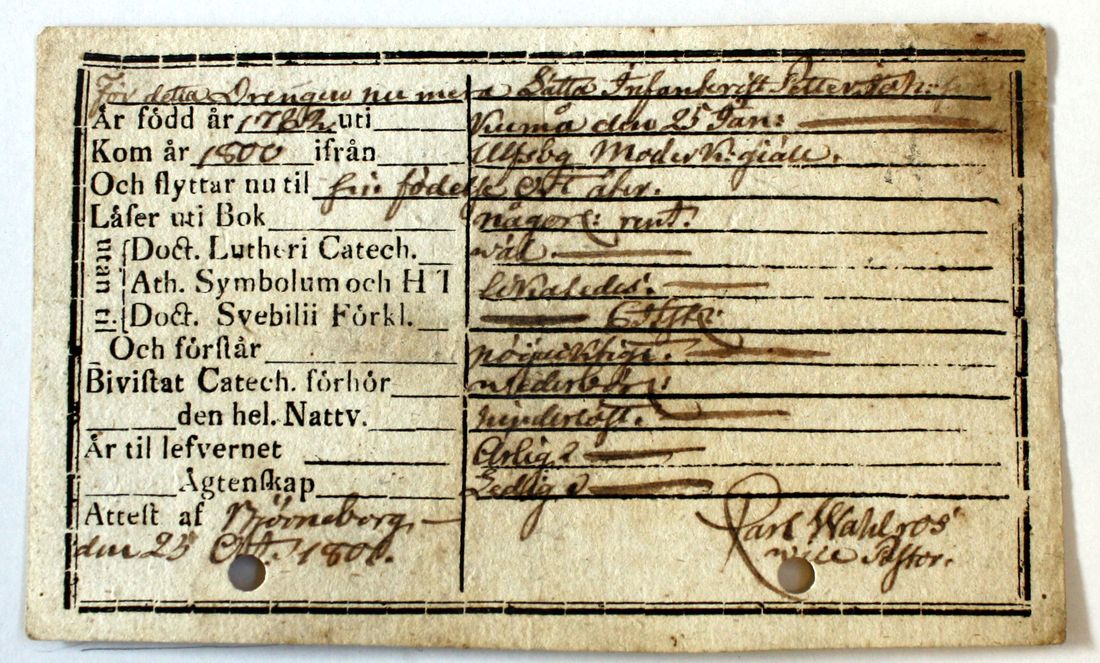 För detta Drengen nu mera Lätta Infanterist Petter
År född år 178 uti den 25 Jan:
Kom år 1800 ifrån Ulfsbg Moder
Och flyttar nu til födelse Ort åter.
Låſer uti Bok någorl: rent.
utan til. Doct. Lutheri Catech. wäl.
Ath. Symbolum och H T Likaledes.
Doct. Svebilii Förkl.
Och förſtår
Biviſtat Catech. förhör
den hel. Nattv. hinderlöst.
Är til lefvernet Ärlig
Ägtenſkap Ledig
Atteſt af Björneborg
den 25 Oct. 180 Carl Wahlroos
vice Pastor.